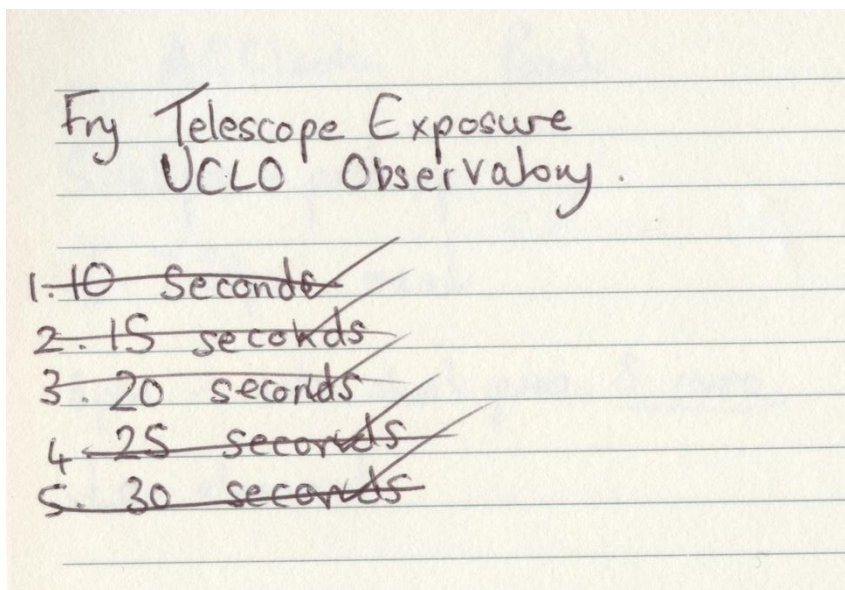 Fry Telescope Exposure
UCLO Observatory.
1. 10 seconds
2. 15 seconds
3. 20 seconds
4. 25 seconds
5. 30 seconds